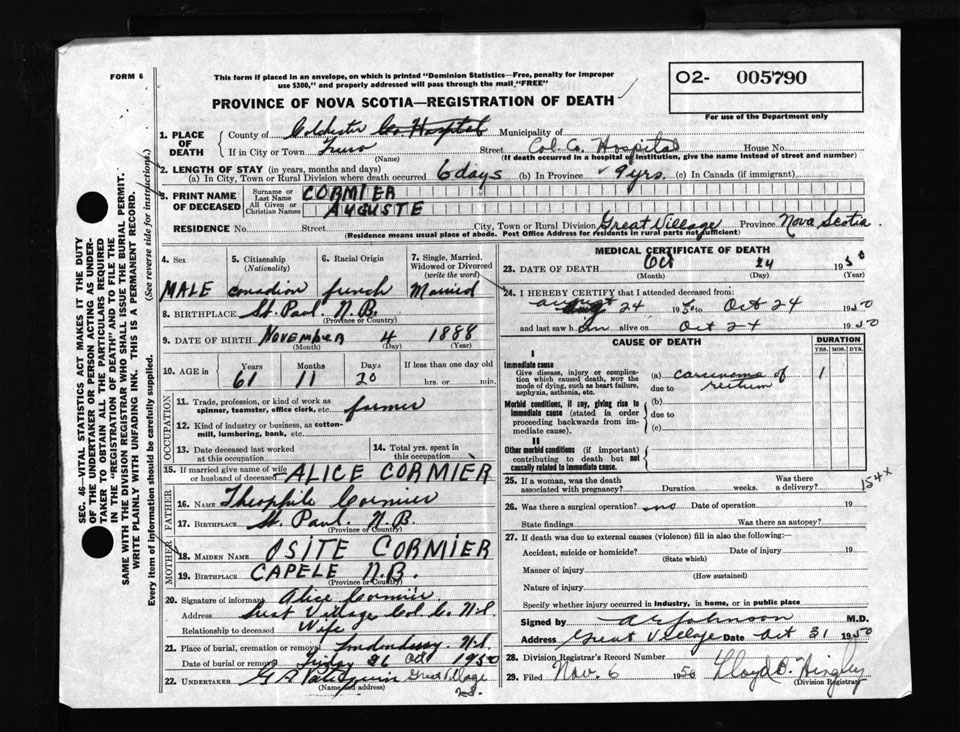 FORM 6
This form if placed in an envelope, on which is printed "Dominion Statistics—Free, penalty for improper
use $300," and properly addressed will pass through the mail "FREE"
O2- 005790
For use of the Department only
PROVINCE OF NOVA SCOTIA—REGISTRATION OF DEATH
1. PLACE OF DEATH
County of Colchester Co. Hospital Municipality of
If in City or Town Truro Street Col. Co. Hospital House No.
(Name) (If death occurred in a hospital of institution, give the name instead of street and number)
2. LENGTH OF STAY (in years, months and days)
(a) In City, Town or Rural Division where death occurred 6 days (b) In Province 9 yrs. (c) In Canada (if immigrant)
3. PRINT NAME OF DECEASED
Surname or Last Name CORMIER
All Given or Christian Names AUGUSTE
RESIDENCE No. Street City, Town or Rural Division Great Village Province Nova Scotia
(Residence means usual place of abode. Post Office Address for residents in rural parts not sufficient)
4. SEX 5. Citizenship (Nationality) 6. Racial Origin 7. Single, Married, Widowed or Divorced (write the word)
MALE Canadian french Married
8. BIRTHPLACE St. Paul. N.B.
(Province or Country)
9. DATE OF BIRTH NOVEMBER 4 1888
(Month) (Day) (Year)
10. AGE in Years Months Days If less than one day old
61 11 20 hrs. or min.
OCCUPATION
11. Trade, profession, or kind of work as
spinner, teamster, office clerk, etc. farmer
12. Kind of industry or business, as cotton-
mill, lumbering, bank, etc.
13. Date deceased last worked at this occupation
14. Total yrs. spent in this occupation
15. If married give name of wife or husband of deceased ALICE CORMIER
FATHER
16. NAME Theophile Cormier
17. BIRTHPLACE St. Paul. N.B.
(Province or Country)
MOTHER
18. MAIDEN NAME OSITE CORMIER
19. BIRTHPLACE CAPELE N.B.
(Province or Country)
20. Signature of informant Alice Cormier
Address Great Village Col. Co. N.S.
Relationship to deceased Wife
21. Place of burial, cremation or removal Londonderry. N.S.
Date of burial or removal Friday 26 Oct 1950
22. UNDERTAKER Great Village
(Name and address) N.S.
MEDICAL CERTIFICATE OF DEATH
23. DATE OF DEATH Oct 24 1950
(Month) (Day) (Year)
24. I HEREBY CERTIFY that I attended deceased from:
August 24 1950 to Oct 24 1950
and last saw him alive on Oct 24 1950
CAUSE OF DEATH
DURATION
YRS. MOS. DYS.
I
Immediate cause
Give disease, injury or complica-
tion which caused death, NOT the
mode of dying, such as heart failure,
asphyxia, asthenia, etc.
(a) carcinoma of rectum 1
due to
Morbid conditions, if any, giving rise to
immediate cause (stated in order
proceeding backwards from im-
mediate cause).
(b)
due to
(c)
II
Other morbid conditions (if important)
contributing to death but not
causally related to immediate cause.
25. If a woman, was the death
associated with pregnancy? Duration weeks. Was there a delivery?
154x
26. Was there a surgical operation? no Date of operation 19
State findings Was there an autopsy?
27. If death was due to external causes (violence) fill in also the following:—
Accident, suicide or homicide? Date of injury 19
(State which)
Manner of injury
(How sustained)
Nature of injury
Specify whether injury occurred in industry, in home, or in public place
Signed by Johnson M.D.
Address Great Village Date Oct 31 1950
28. Division Registrar's Record Number
29. Filed Nov. 6 1950 Lloyd
(Division Registrar)
SEC. 46—VITAL STATISTICS ACT MAKES IT THE DUTY
OF THE UNDERTAKER OR PERSON ACTING AS UNDER-
TAKER TO OBTAIN ALL THE PARTICULARS REQUIRED
IN THE "REGISTRATION OF DEATH" AND TO FILE THE
SAME WITH THE DIVISION REGISTRAR WHO SHALL ISSUE THE BURIAL PERMIT.
WRITE PLAINLY WITH UNFADING INK. THIS IS A PERMANENT RECORD.
Every item of information should be carefully supplied. (See reverse side for instructions.)